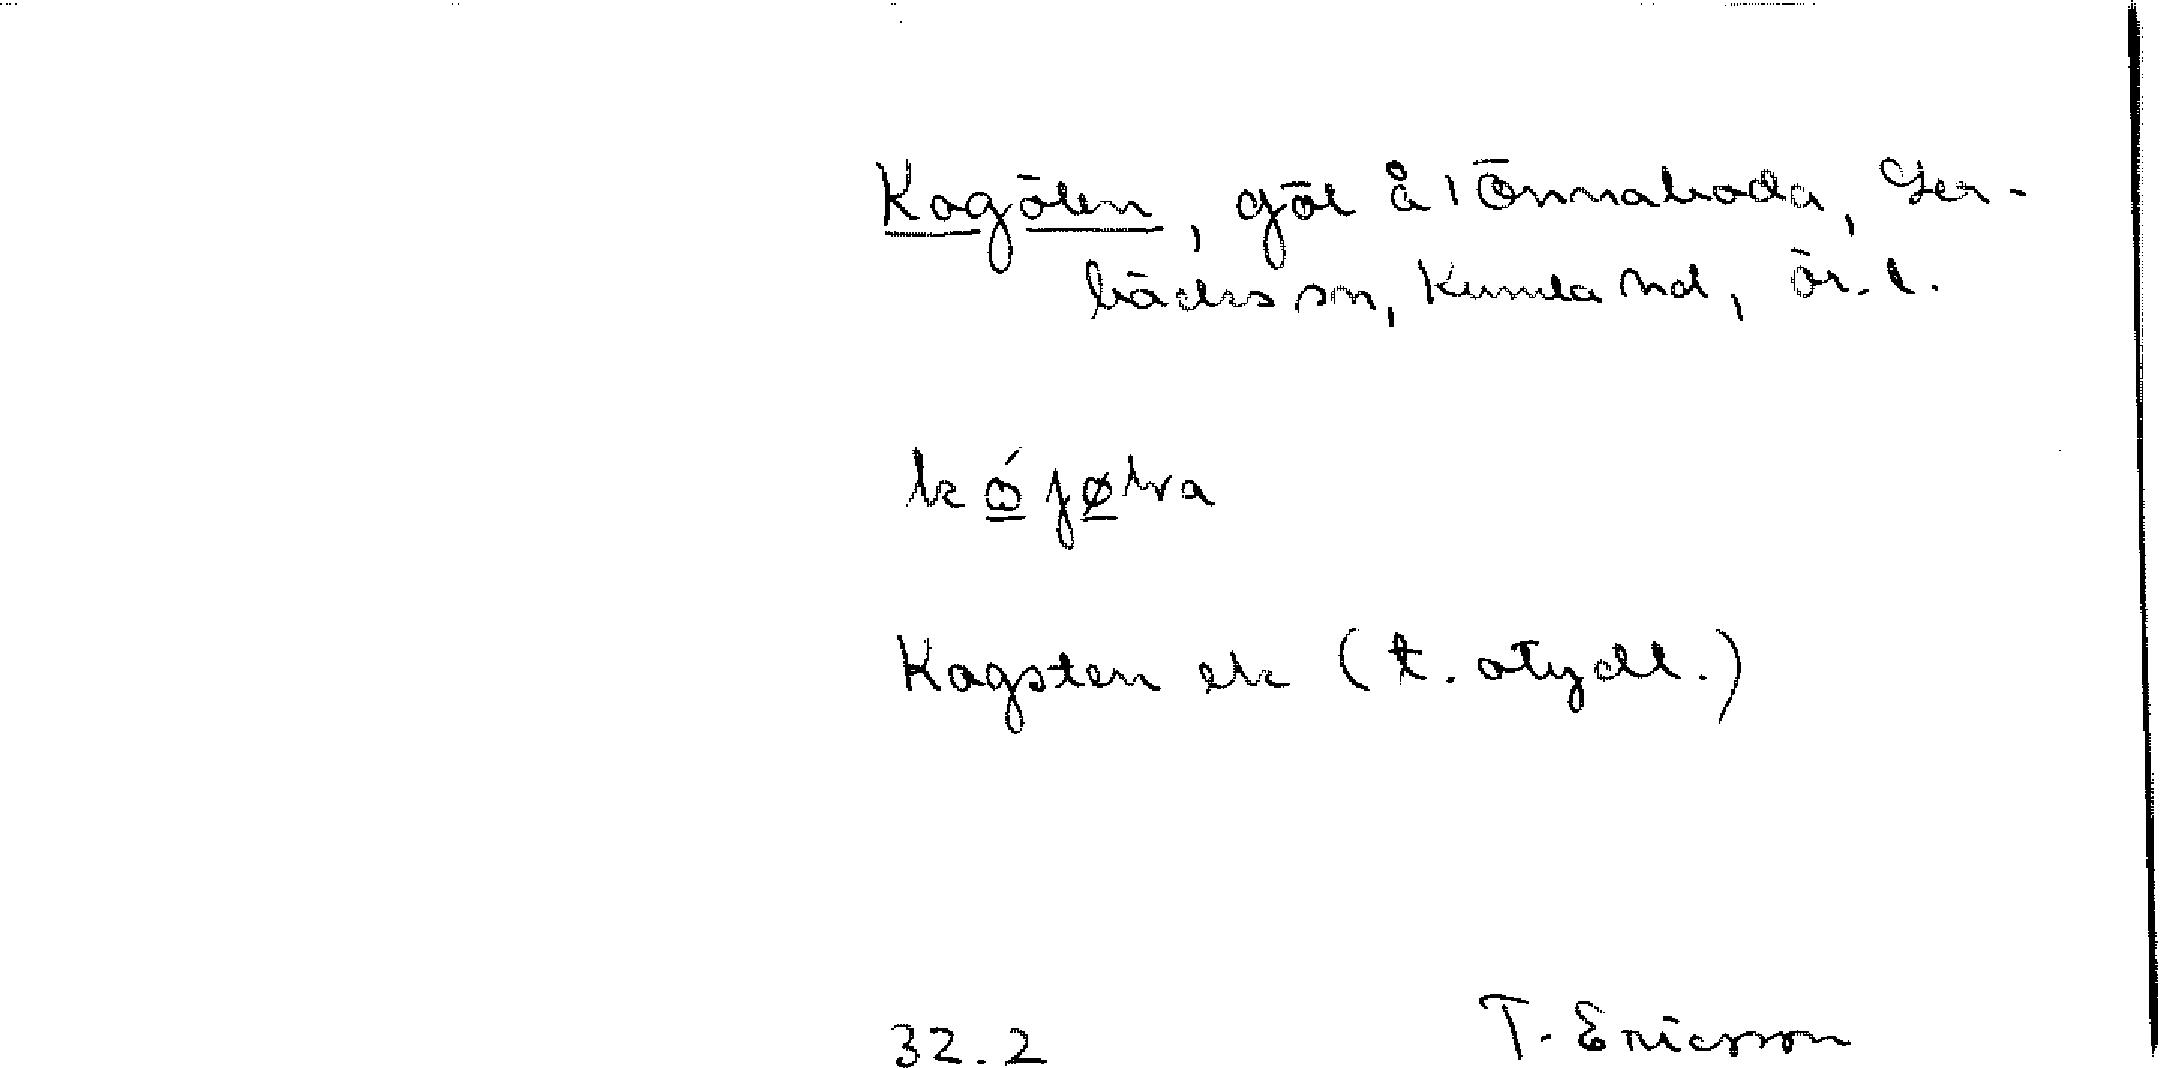 Kagölen, göl å Önnaboda, Ler-
bäcks sn, Kumla hd, Ör. l.
kójøłva
Kagsten ek (t. otydl.)
32.2 T. Ericsson